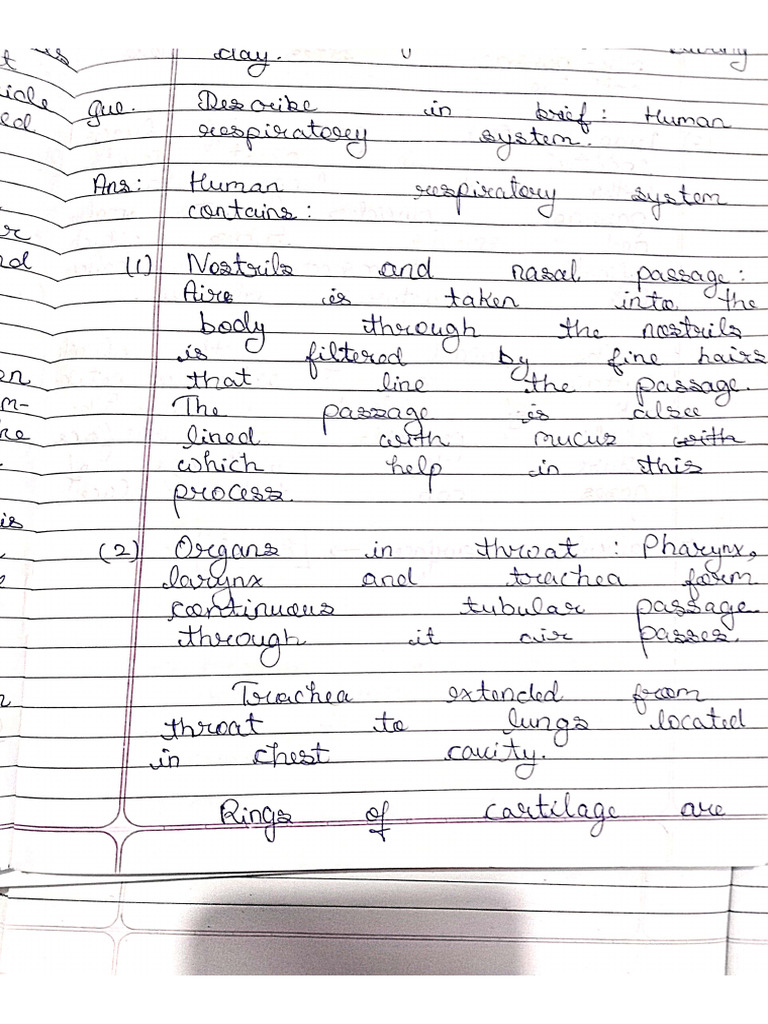 day.
que. Describe in brief: Human
respiratory system.
Ans: Human respiratory system
contains:
(1) Nostrils and nasal passage:
Aire is taken into the
body through the nostrils
is filtered by fine hairs
that line the passage.
The passage is also
lined with mucus with
which help in this
process.
(2) Organs in throat : Pharynx,
larynx and trachea form
continuous tubular passage
through it air passes.
Trachea extended from
throat to lungs located
in chest cavity.
Rings of cartilage are